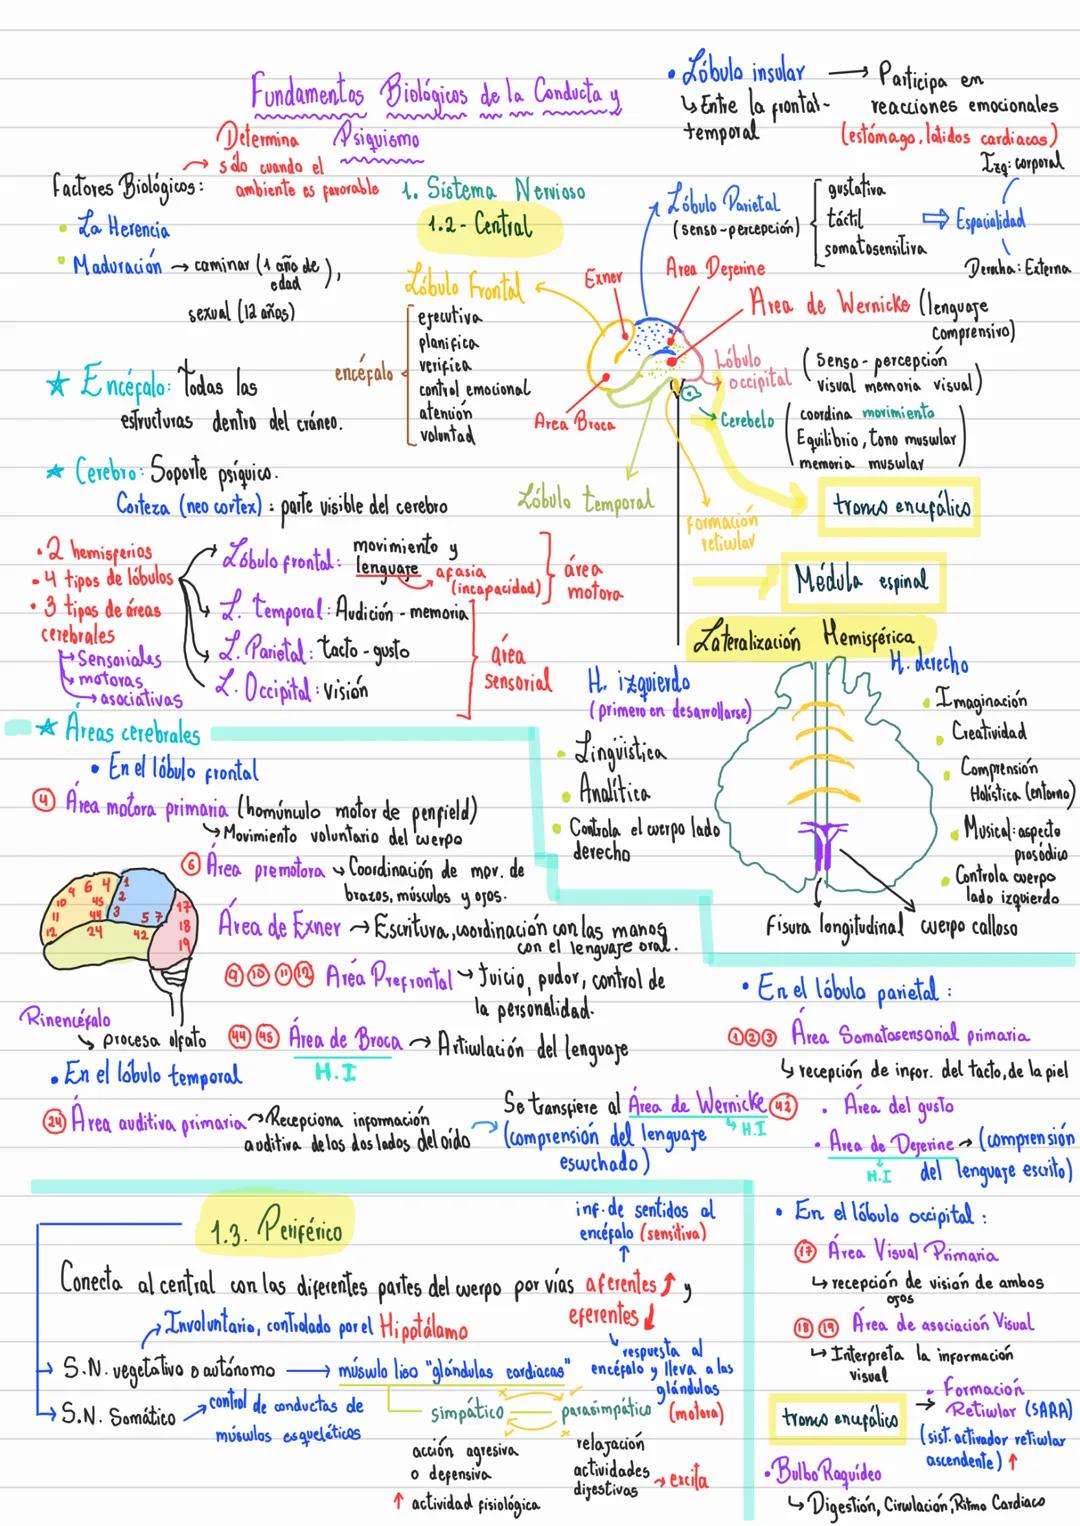 Fundamentos Biológicos de la Conducta y
Psiquismo
Determina
sólo cuando el
ambiente es favorable
Factores Biológicos:
La Herencia
Maduración → caminar (1 año de edad),
sexual (12 años)
★ Encéfalo: Todas las
estructuras dentro del cráneo.
★ Cerebro: Soporte psíquico.
Corteza (neo cortex): parte visible del cerebro
• 2 hemisferios
• 4 tipos de lóbulos
• 3 tipos de áreas
cerebrales
→ Sensoriales
→ motoras
→ asociativas
Lóbulo frontal: movimiento y
lenguaje → afasia
(incapacidad)
área
motora
L. temporal: Audición - memoria
L. Parietal: tacto - gusto
L. Occipital: visión
área
sensorial
1. Sistema Nervioso
1.2 - Central
Lóbulo Frontal
encéfalo
ejecutiva
planifica
verifica
control emocional
atención
voluntad
• Lóbulo insular → Participa en
reacciones emocionales
(estómago, latidos cardiacos)
↳ Entre la frontal-
temporal
Lóbulo Parietal
(senso-percepción)
gustativa
táctil
somatosensitiva
⇒ Espacialidad
Izq: corporal
Derecha: Externa
Exner
Area Dejerine
Area de Wernicke (lenguaje
comprensivo)
Lóbulo
occipital
(Senso-percepción
visual memoria visual)
Area Broca
Cerebelo
(coordina movimiento
Equilibrio, tono muscular
memoria muscular)
Lóbulo temporal
Formación
reticular
tronco encefálico
Médula espinal
Lateralización Hemisférica
H. izquierdo
(primero en desarrollarse)
Lingüística
Analítica
Controla el cuerpo lado
derecho
H. derecho
Imaginación
Creatividad
Comprensión
Holística (entorno)
Musical: aspecto
prosódico
Controla cuerpo
lado izquierdo
Fisura longitudinal
cuerpo calloso
★ Áreas cerebrales
• En el lóbulo frontal
4 Área motora primaria (homúnculo motor de penfield)
↳ Movimiento voluntario del cuerpo
6 Área premotora ↘ Coordinación de mov. de
brazos, músculos y ojos.
Área de Exner → Escritura, coordinación con las manos
con el lenguaje oral.
9 10 11 12 Area Prefrontal → Juicio, pudor, control de
la personalidad.
44 45 Área de Broca → Articulación del lenguaje
H.I
9 6 4 1
10 45 2
11 44 3 5 7 17
12 24 42 18
19
Rinencéfalo
↳ procesa olfato
• En el lóbulo temporal
24 Area auditiva primaria → Recepciona información
auditiva de los dos lados del oído
Se transfiere al Área de Wernicke 42
↳ H.I
(comprensión del lenguaje
escuchado)
• En el lóbulo parietal:
1 2 3 Área Somatosensorial primaria
↳ recepción de infor. del tacto, de la piel
• Área del gusto
• Área de Dejerine → (comprensión
H.I
del lenguaje escrito)
1.3. Periférico
inf. de sentidos al
encéfalo (sensitiva)
↑
Conecta al central con las diferentes partes del cuerpo por vías aferentes ↑ y
eferentes ↓
respuesta al
encéfalo y lleva a las
glándulas
(motora)
Involuntario, controlado por el Hipotálamo
→ S.N. vegetativo o autónomo → músculo liso "glándulas cardiacas"
→ S.N. Somático → control de conductas de
músculos esqueléticos
simpático
parasimpático
acción agresiva
o defensiva
↑ actividad fisiológica
relajación
actividades
digestivas → excita
• En el lóbulo occipital:
17 Área Visual Primaria
↳ recepción de visión de ambos
ojos
18 19 Área de asociación Visual
↳ Interpreta la información
visual
tronco encefálico → - Formación
Reticular (SARA)
(sist. activador reticular
ascendente) ↑
• Bulbo Raquídeo
↳ Digestión, Circulación, Ritmo Cardiaco